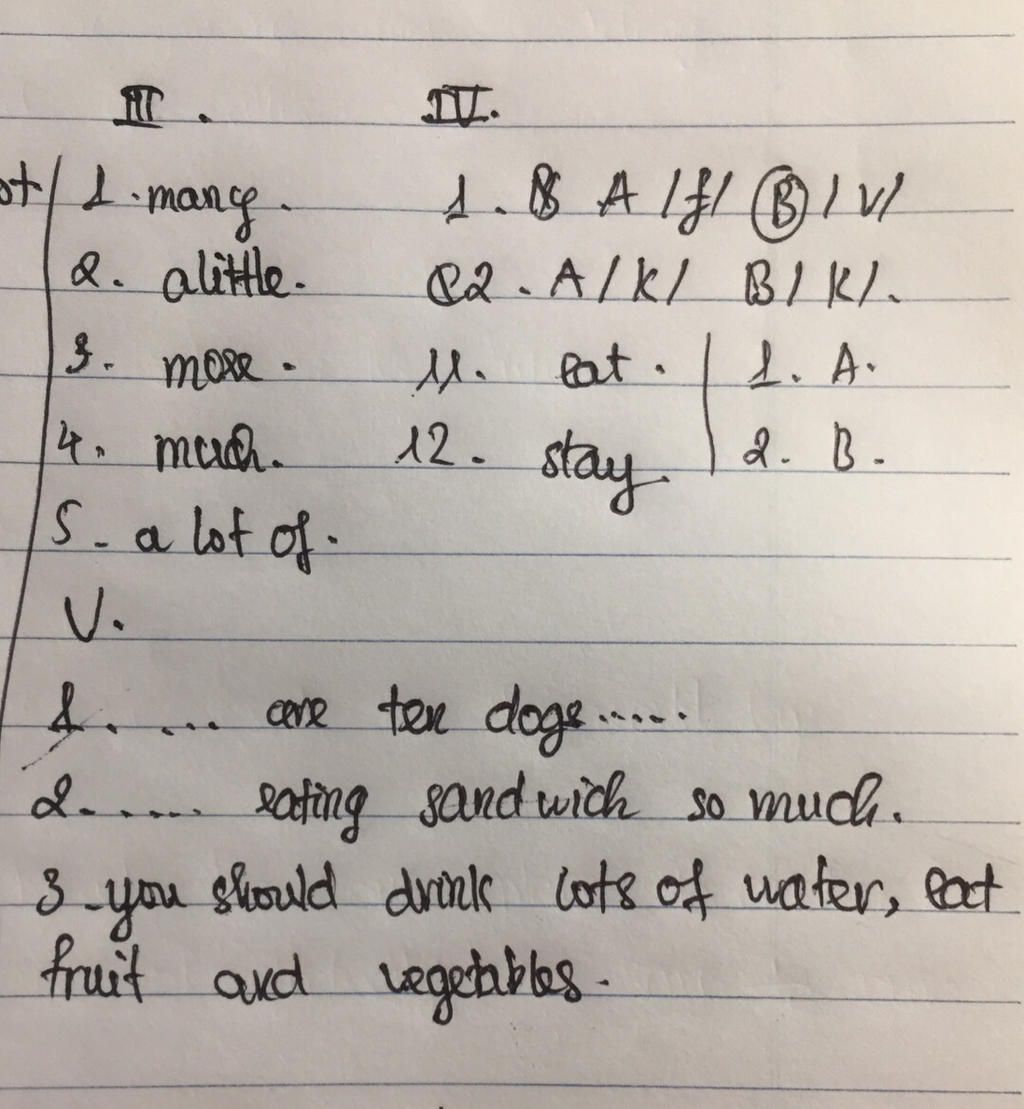 III. IV.
ot 1. many. 1. A /f/ B /v/
2. a little. 2. A /k/ B /k/.
3. more. 11. eat. 1. A.
4. much. 12. stay. 2. B.
5. a lot of.
V.
1. ... are ten dogs.....
2...... eating sandwich so much.
3. you should drink lots of water, eat
fruit and vegetables.